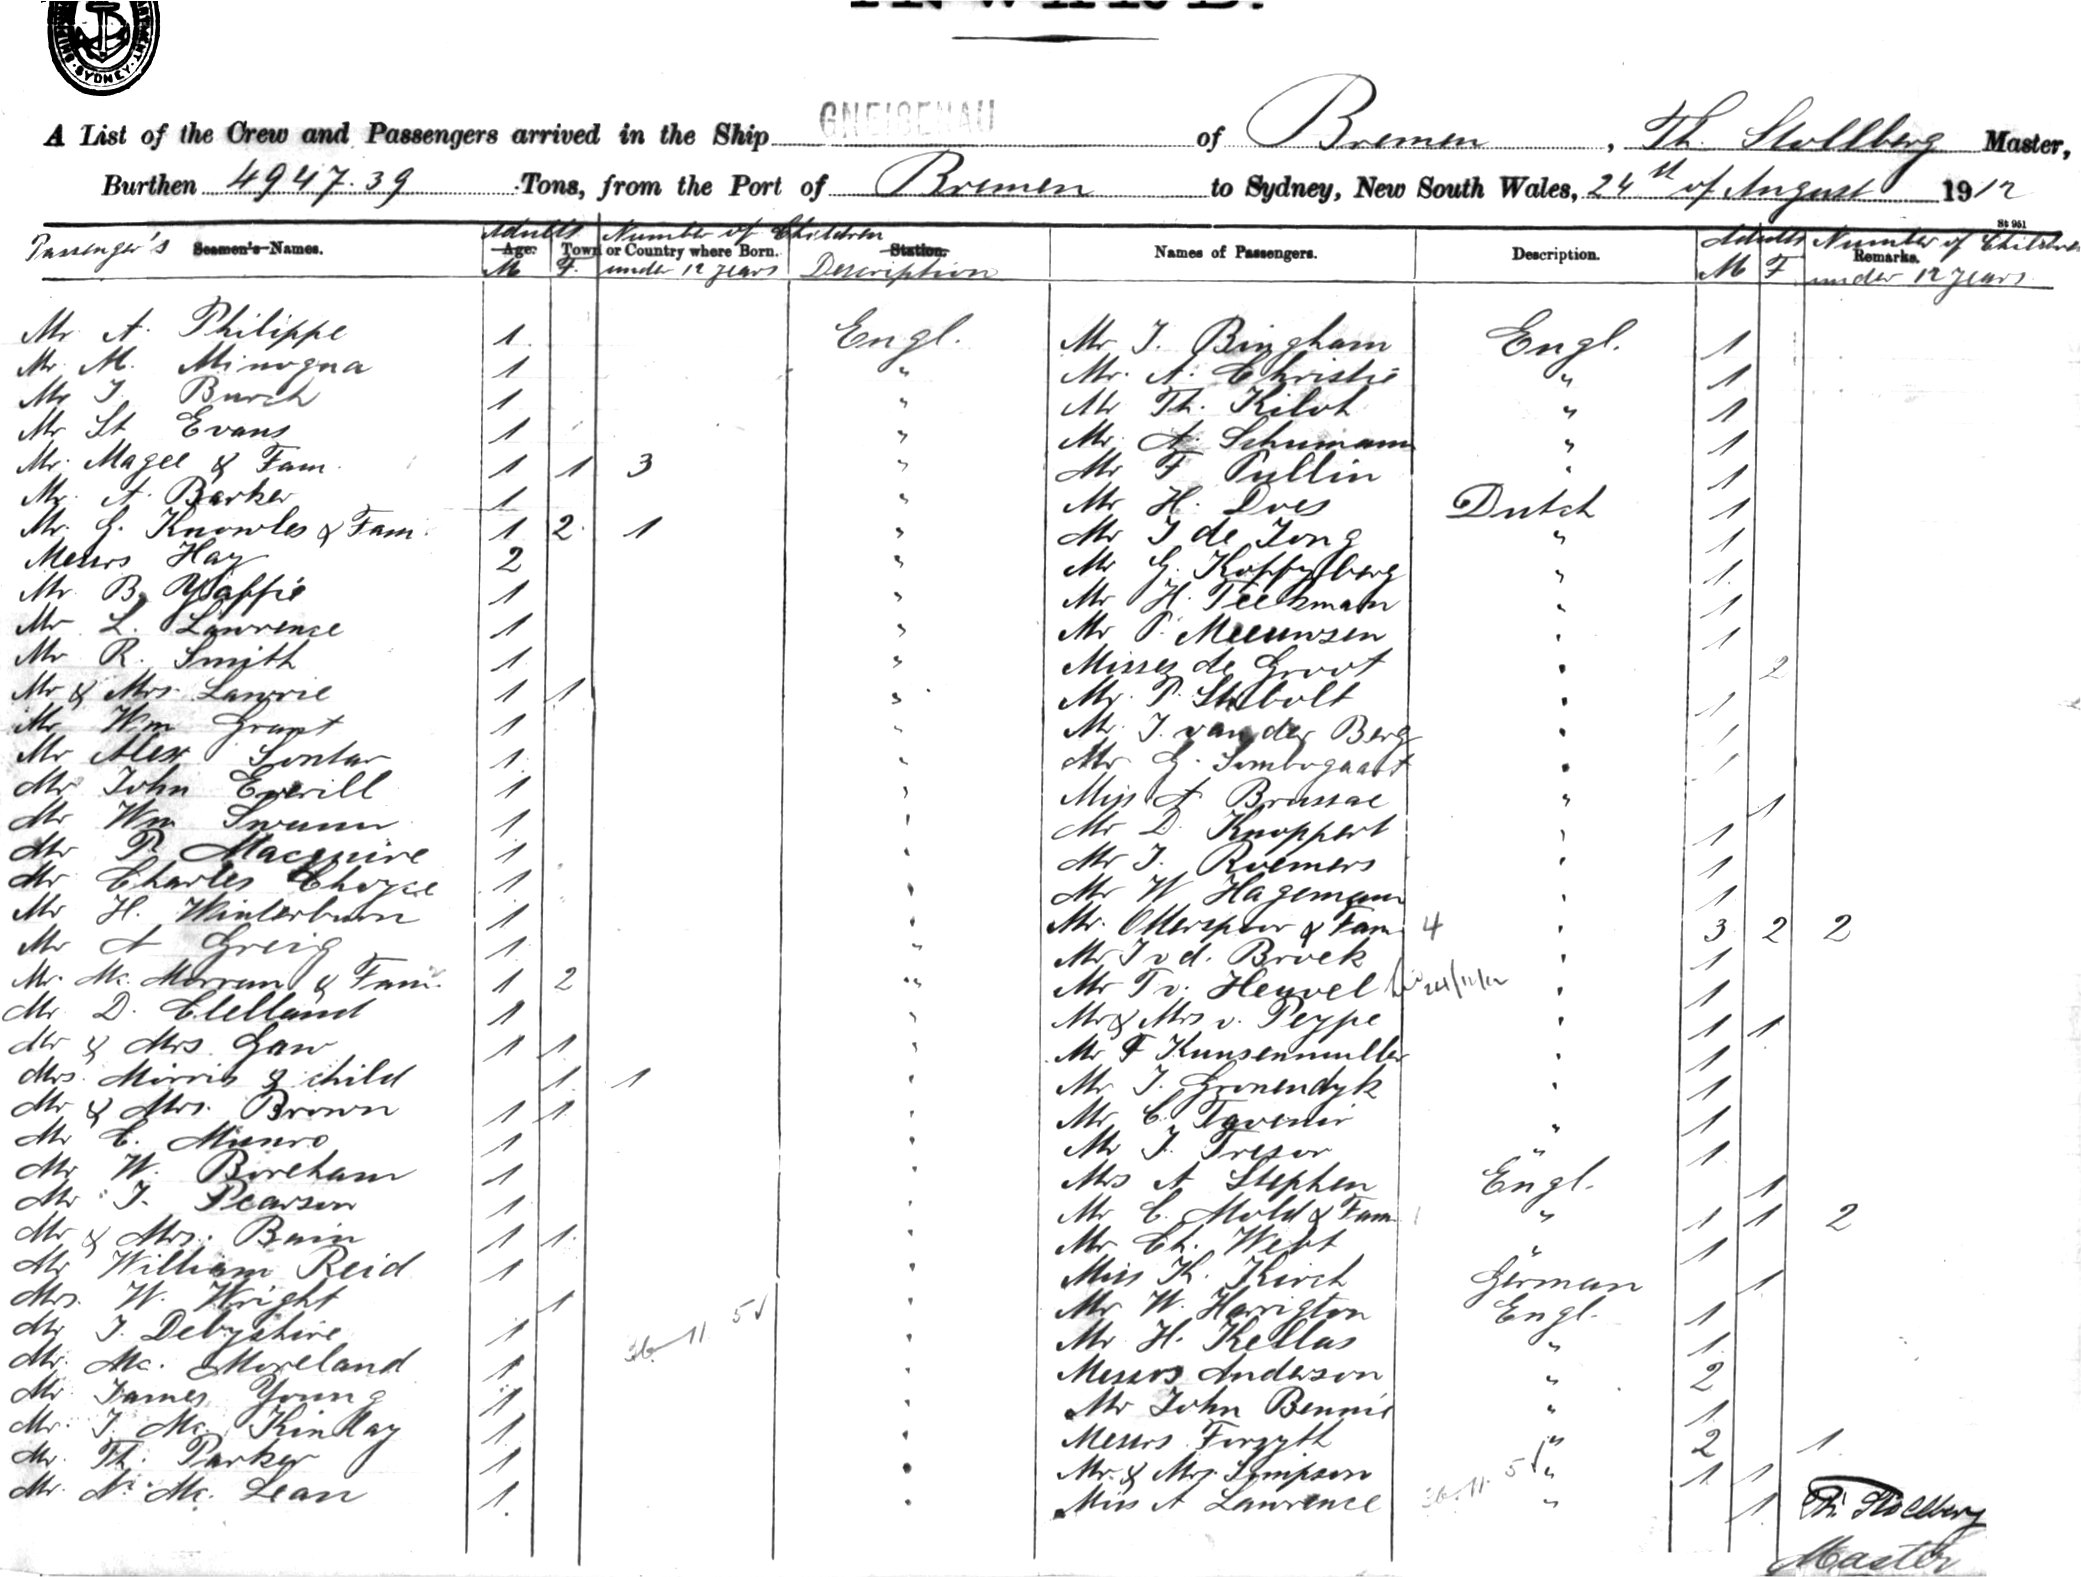 SYDNEY
A List of the Crew and Passengers arrived in the Ship GNEISENAU of Bremen, Th. Stollberg Master,
Burthen 4947.39 Tons, from the Port of Bremen to Sydney, New South Wales, 24st of August 1912
St 951
Passenger's Seamen's Names. Adults Age. M F. Town or Country where Born. Number of Children under 12 years Station. Description Names of Passengers. Description. Adults M F Number of Children Remarks. under 12 years
Mr A. Philippe 1 Engl. Mr J. Bingham Engl. 1
Mr. M. Minogna 1 " Mr. A. Christie " 1
Mr J. Burch 1 " Mr Th. Kiloh " 1
Mr St Evans 1 " Mr. A. Schumann " 1
Mr. Magee & Fam. 1 1 3 " Mr F Pullin " 1
Mr. A. Barker 1 " Mr H. Does Dutch 1
Mr. G. Knowles & Fam. 1 2 1 " Mr J de Jong " 1
Messrs Hay 2 " Mr G. " 1
Mr. B. Yaffie 1 " Mr H. Teekman " 1
Mr L. Lawrence 1 " Mr P. Meeuwsen " 1
Mr R. Smith 1 " Misses de Groot " 2
Mr & Mrs. Lawrie 1 1 " Mr. P. " 1
Mr Wm Grant 1 " Mr. J. van der Berg " 1
Mr Alex Sontar 1 " Mr. G. Sombogaart " 1
Mr John Everill 1 " Miss A Brussae " 1
Mr Wm Swann 1 " Mr D. Knoppert " 1
Mr P. Macguire 1 " Mr J. Roemers " 1
Mr Charles Choyce 1 " Mr W Hagemann " 1
Mr H. Winterburn 1 " Mr. Otterspoor & Fam 4 " 3 2 2
Mr A Greig 1 " Mr J v d. Broek " 1
Mr. Mc. Morran & Fam. 1 2 " Mr T v. Heuvel 24/11/12 " 1
Mr D. Clelland 1 " Mr & Mrs v. Peype " 1 1
Mr & Mrs. Gaw 1 1 " Mr F Kunsenmuller " 1
Mrs. Morris & child 1 1 " Mr J. Gronendyk " 1
Mr & Mrs. Brown 1 1 " Mr C. Tavenir " 1
Mr C. Munro 1 " Mr J. Tresor " 1
Mr W. Boreham 1 " Mrs A Stephen Engl. 1
Mr J. Pearson 1 " Mr C. Mold & Fam " 1 1 2
Mr & Mrs. Bain 1 1 " Mr Ch. West " 1
Mr William Reid 1 " Miss K. Kirch German 1
Mrs. W. Wright 1 " Mr W. Harrigton Engl. 1
Mr J. Debyshire 1 36 11 5 " Mr H. Kellas " 1
Mr. Mc. Moreland 1 " Messrs Anderson " 2
Mr James Young 1 " Mr John Bennie " 1
Mr. J. Mc. Kinllay 1 " Messrs Forsyth " 2 1
Mr. Th. Parker 1 " Mr. & Mrs. Simpson " 1 1
Mr. N. Mc. Lean 1 " Miss A Lawrence 36 11 5 " 1
Th. Stollberg
Master